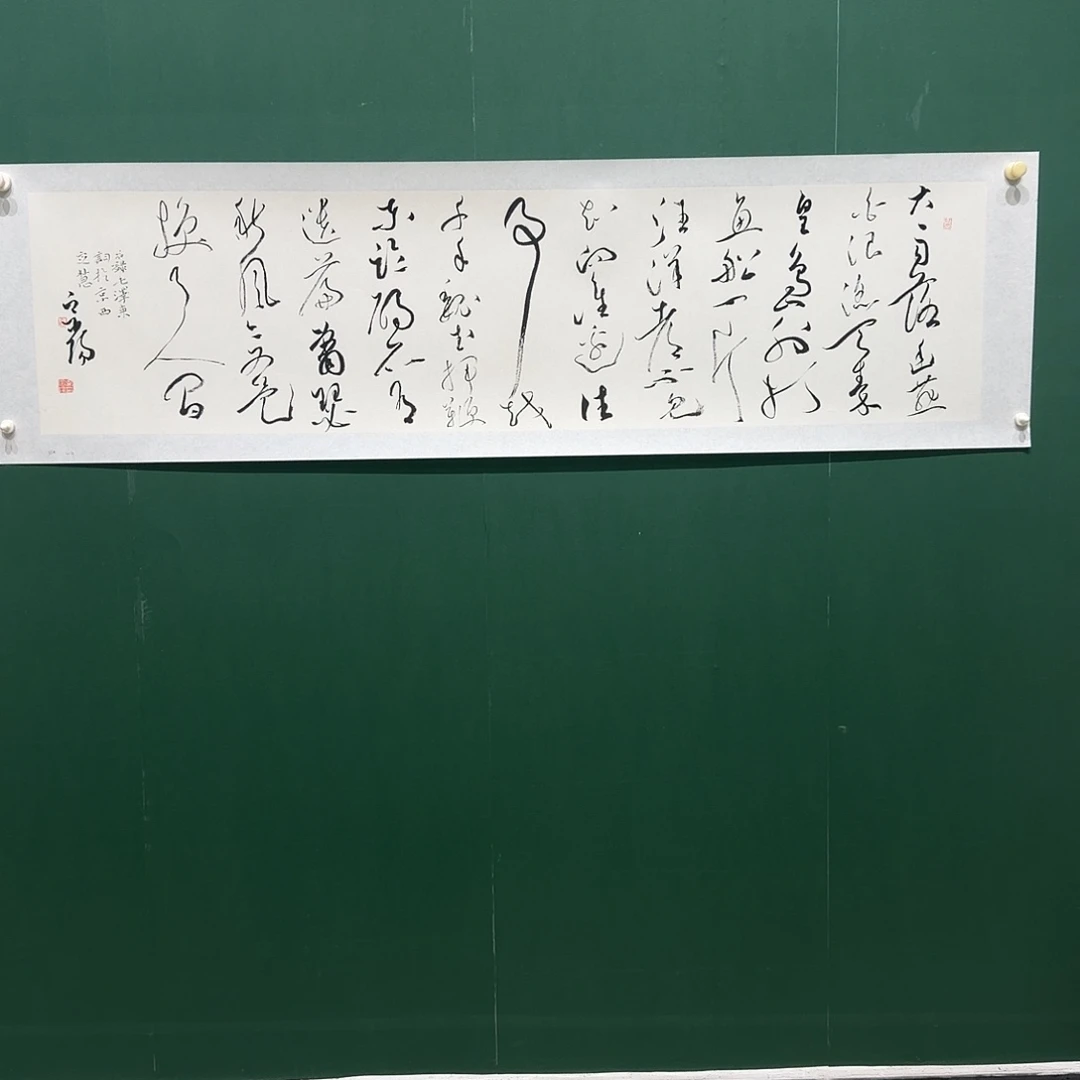 大雨落幽燕
白浪滔天秦
皇岛外打
鱼船一片
汪洋都不见
知向谁边往
事越
千年魏武挥鞭
东临碣石有
遗篇萧瑟
秋风今又是
换了人间